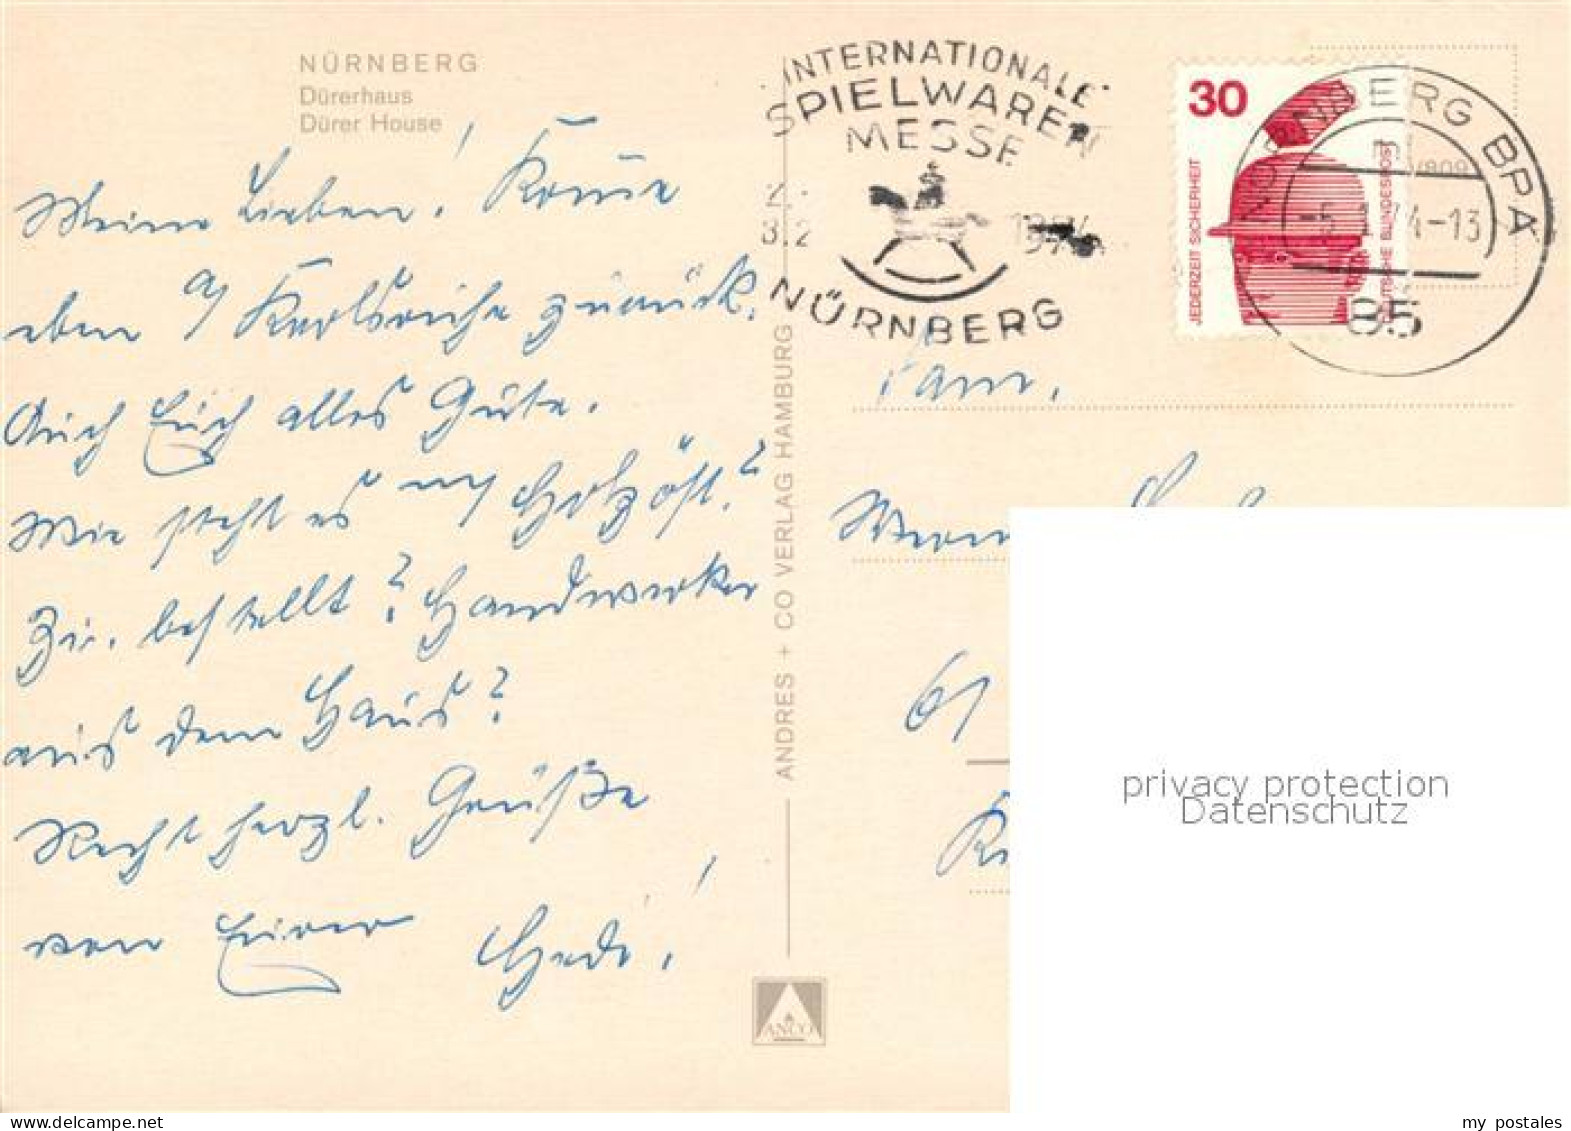 NÜRNBERG
Dürerhaus
Dürer House
Meine Lieben! Komme
eben a/ Karlsruhe zurück.
Auch Euch alles Gute.
Wie steht es m/ Holzöff.?
Zi. bestellt? Handwerker
aus dem Haus?
Recht herzl. Grüße
von Eurer Hedi!
ANDRES + CO VERLAG HAMBURG
ANCO
INTERNATIONALE
SPIELWAREN
MESSE
1974
NÜRNBERG
30
JEDERZEIT SICHERHEIT
DEUTSCHE BUNDESPOST
NÜRNBERG BPA
-5.1.74-13
85
/809
Fam.
61
privacy protection
Datenschutz
my postales